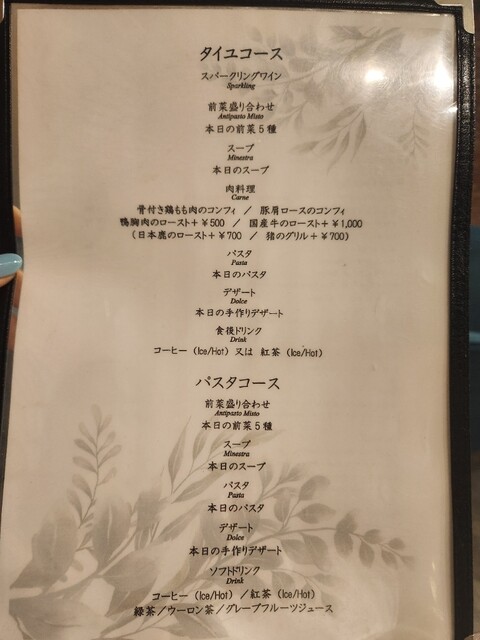 タイユコース
スパークリングワイン
Sparkling
前菜盛り合わせ
Antipasto Misto
本日の前菜５種
スープ
Minestra
本日のスープ
肉料理
Carne
骨付き鶏もも肉のコンフィ ／ 豚肩ロースのコンフィ
鴨胸肉のロースト＋￥500 ／ 国産牛のロースト＋￥1,000
（日本鹿のロースト＋￥700 ／ 猪のグリル＋￥700）
パスタ
Pasta
本日のパスタ
デザート
Dolce
本日の手作りデザート
食後ドリンク
Drink
コーヒー（Ice/Hot）又は 紅茶（Ice/Hot）
パスタコース
前菜盛り合わせ
Antipasto Misto
本日の前菜５種
スープ
Minestra
本日のスープ
パスタ
Pasta
本日のパスタ
デザート
Dolce
本日の手作りデザート
ソフトドリンク
Drink
コーヒー（Ice/Hot）／紅茶（Ice/Hot）
緑茶／ウーロン茶／グレープフルーツジュース